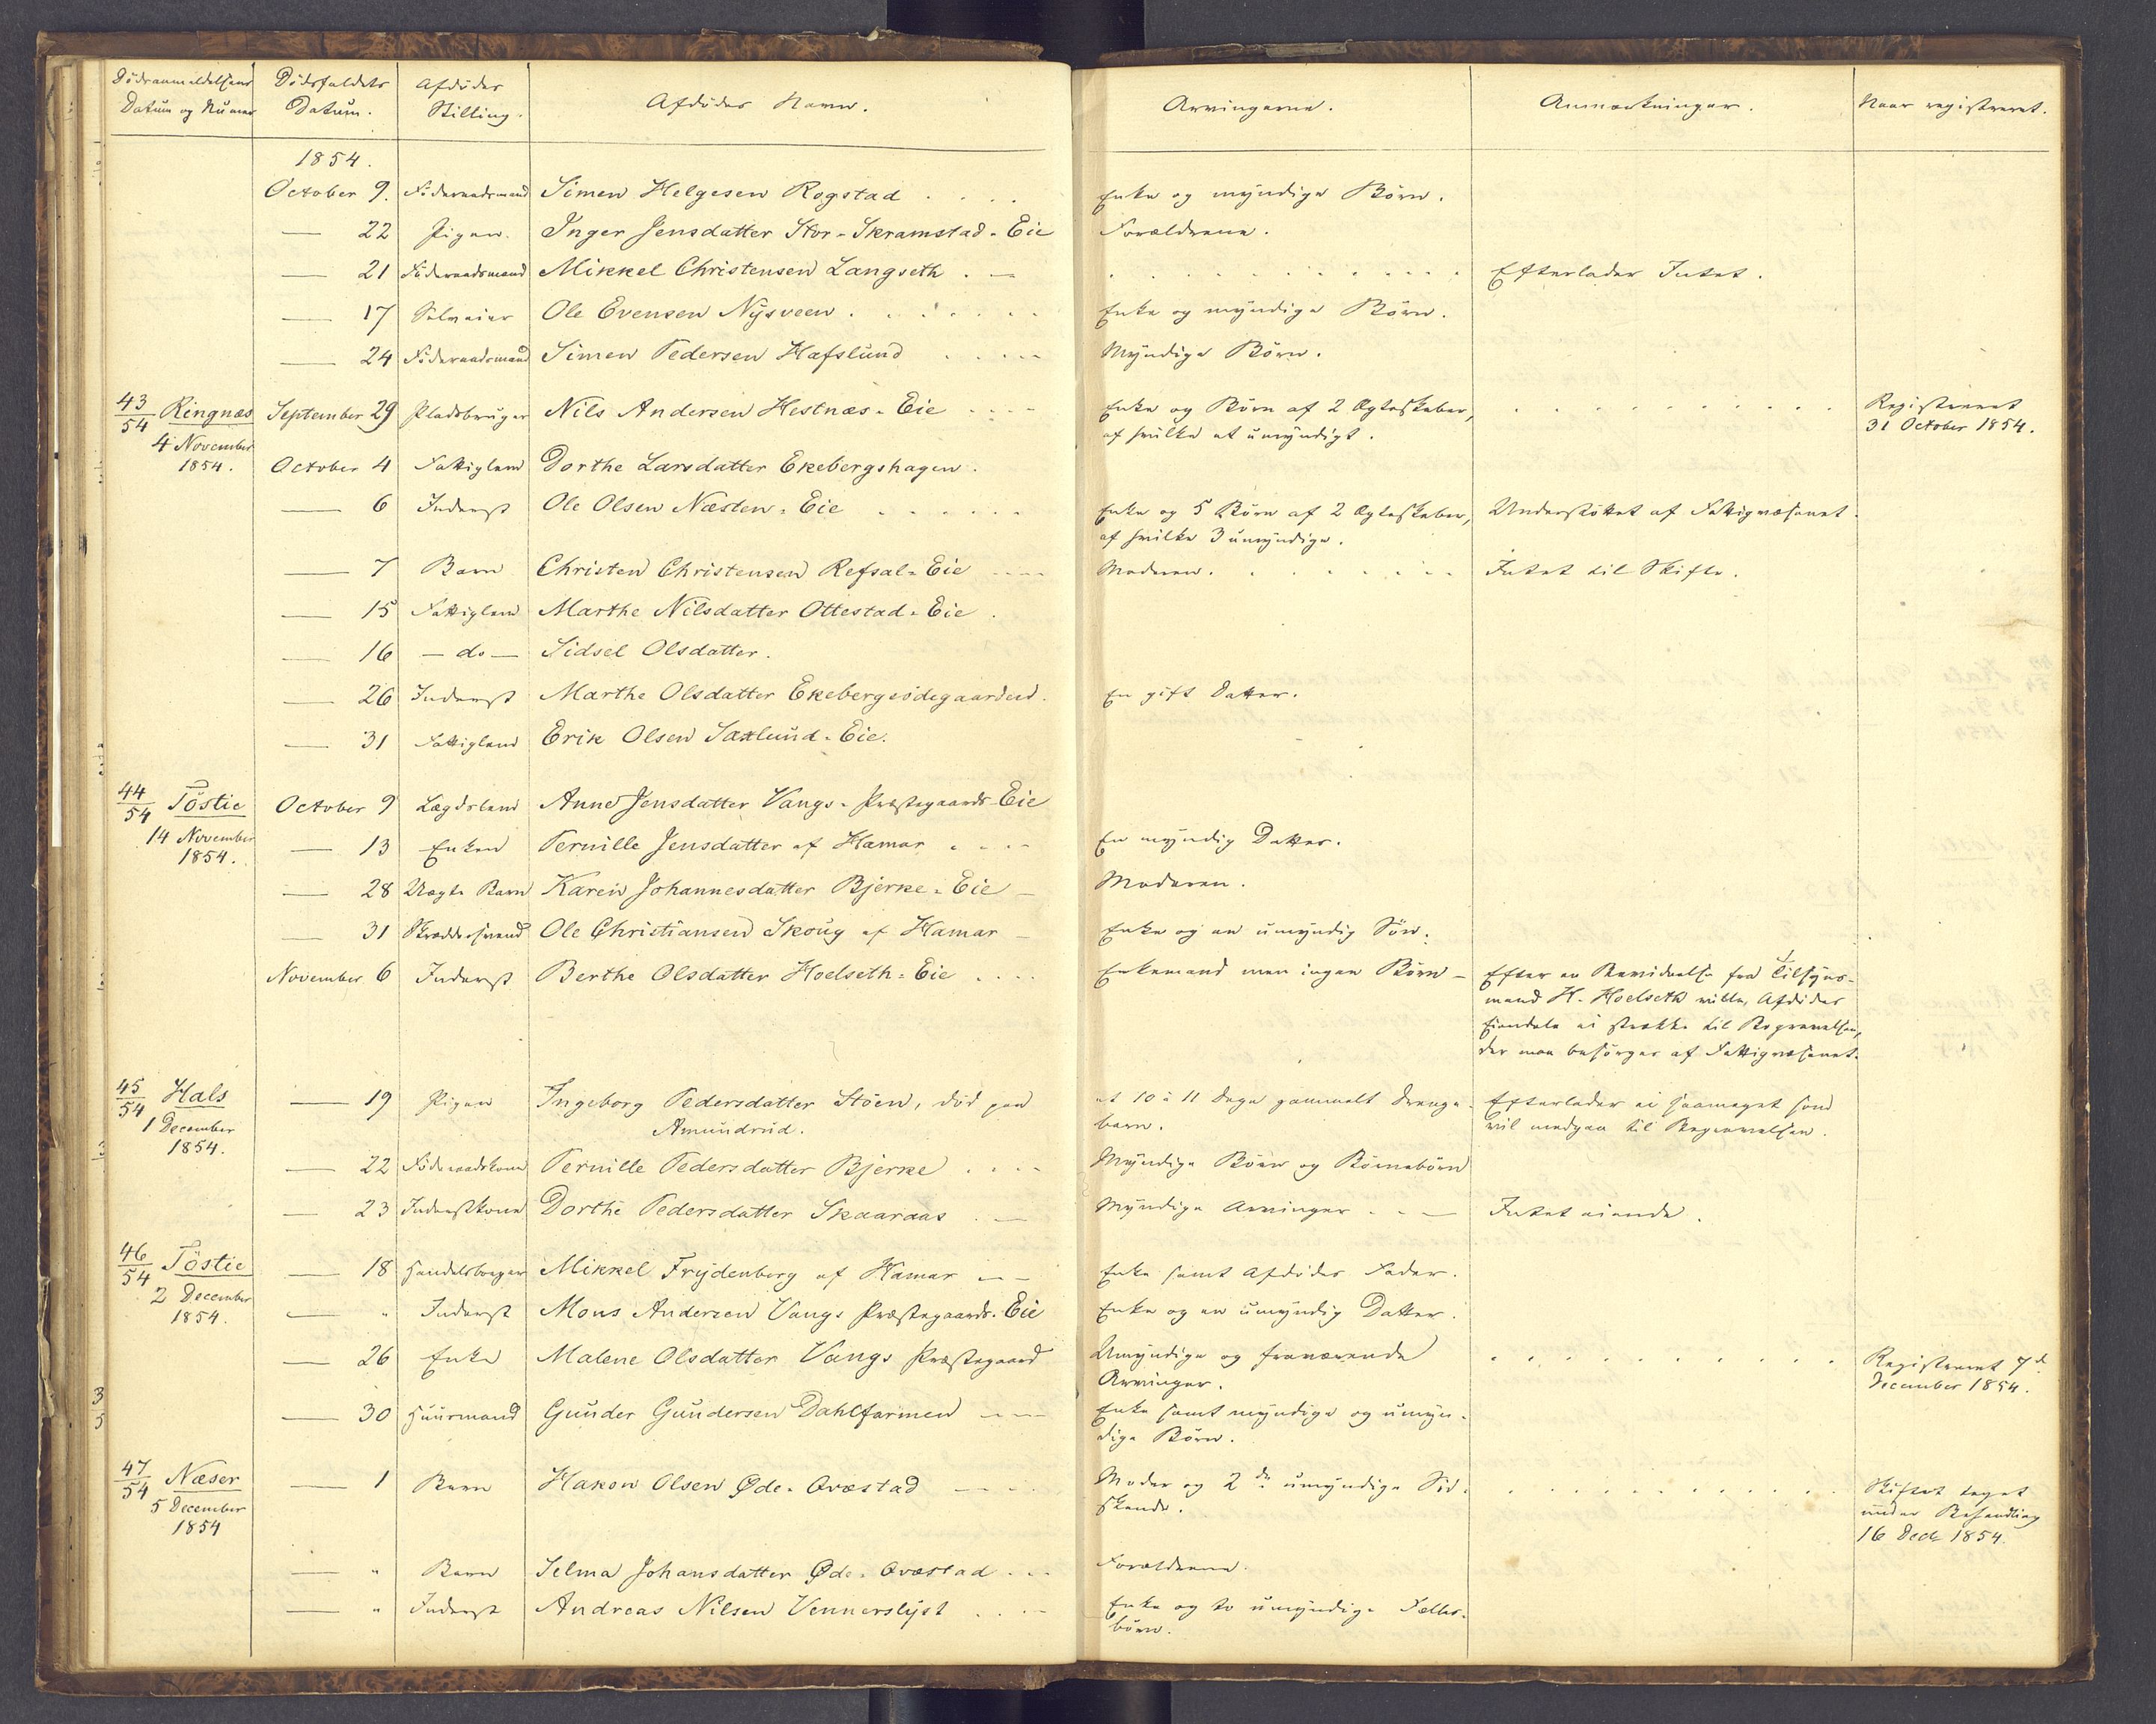 Dödsanmeldelsens Dödsfaldets Afdödes Afdödes Navn. Arvingerne. Anmærkninger. Naar registreret.
Datum og Numer Datum. Stilling.
1854.
October 9. Föderaadsmand Simen Helgesen Rogstad . . . . Enke og myndige Börn.
— 22 Pigen Inger Jensdatter Stor-Skramstad-Eie Forældrene.
— 21 Föderaadsmand Mikkel Christensen Langseth . — . . . . . . Efterlader Intet.
— 17 Selveier Ole Evensen Nysveen . . . . . Enke og myndige Börn.
— 24 Föderaadsmand Simen Pedersen Hafslund . . . . Myndige Börn.
43/54 Ringnæs September 29 Pladsbruger Nils Andersen Hestnæs-Eie . . . . Enke og Börn af 2 Ægteskaber, . . . . . . Registreret
4 November af hvilke et umyndigt. 31 October 1854.
1854. October 4 Fattiglem Dorthe Larsdatter Ekebergshagen.
— 6 Inderst Ole Olsen Næsten-Eie . . . . . . Enke og 5 Börn af 2 Ægteskaber, Understöttet af Fattigvæsenet.
af hvilke 3 umyndige.
— 7 Barn Christen Christensen Refsal-Eie . . . . Moderen. . . . . . . Intet til Skifte.
— 15 Fattiglem Marthe Nilsdatter Ottestad-Eie .
— 16 — do — Sidsel Olsdatter.
— 26 Inderst Marthe Olsdatter Ekebergsödegaarden. En gift Datter.
— 31 Fattiglem Erik Olsen Saxlund-Eie.
44/54 Töstie October 9 Lægdslem Anne Jensdatter Vangs-Præstegaards-Eie
14 November — 13 Enken Pernille Jensdatter af Hamar . . . . En myndig Datter.
1854.
— 28 Uægte Barn Karen Johannesdatter Bjerke-Eie — Moderen.
— 31 Skræddersvend Ole Christiansen Skoug af Hamar — Enke og en umyndig Sön.
November 6 Inderst Berthe Olsdatter Hoelseth-Eie . . . . Enkemand men ingen Börn — Efter en Beviidnelse fra Tilsyns-
mand H. Hoelseth ville Afdödes
Eiendele ei strække til Begravelsen,
der maa besörges af Fattigvæsenet.
45/54 Hals — 19 Pigen Ingeborg Pedersdatter Stöen, död paa et 10 à 11 Dage gammelt Drenge- Efterlader ei saameget som
1 December Amundrud. barn. vil medgaa til Begravelsen.
1854.
— 22 Föderaadskone Pernille Pedersdatter Bjerke . . . . Myndige Börn og Börnebörn
— 23 Inderstkone Dorthe Pedersdatter Skaaraas . — Myndige Arvinger . . — Intet eiende.
46/54 Töstie — 18 Handelsborger Mikkel Frydenberg af Hamar . — Enke samt Afdödes Fader.
2 December — " Inderst Mons Andersen Vangs Præstegaards-Eie Enke og en umyndig Datter.
1854.
— 26 Enke Malene Olsdatter Vangs Præstegaard Umyndige og fraværende . . . . . . Registreret 7de
Arvinger. December 1854.
— 30 Huusmand Gunder Gundersen Dahlfarmen — — Enke samt myndige og umyn-
dige Börn.
47/54 Næser — 1 Barn Hakon Olsen Øde-Qvæstad — — Moder og 2de umyndige Söd- . . . . . . Skiftet taget
5 December skende. under Behandling
1854 16 Decbr 1854.
— " Barn Selma Johansdatter Øde-Qvæstad . . . Forældrene.
— " Inderst Andreas Nilsen Vennerslyst . . . . Enke og to umyndige Fælles-
börn.